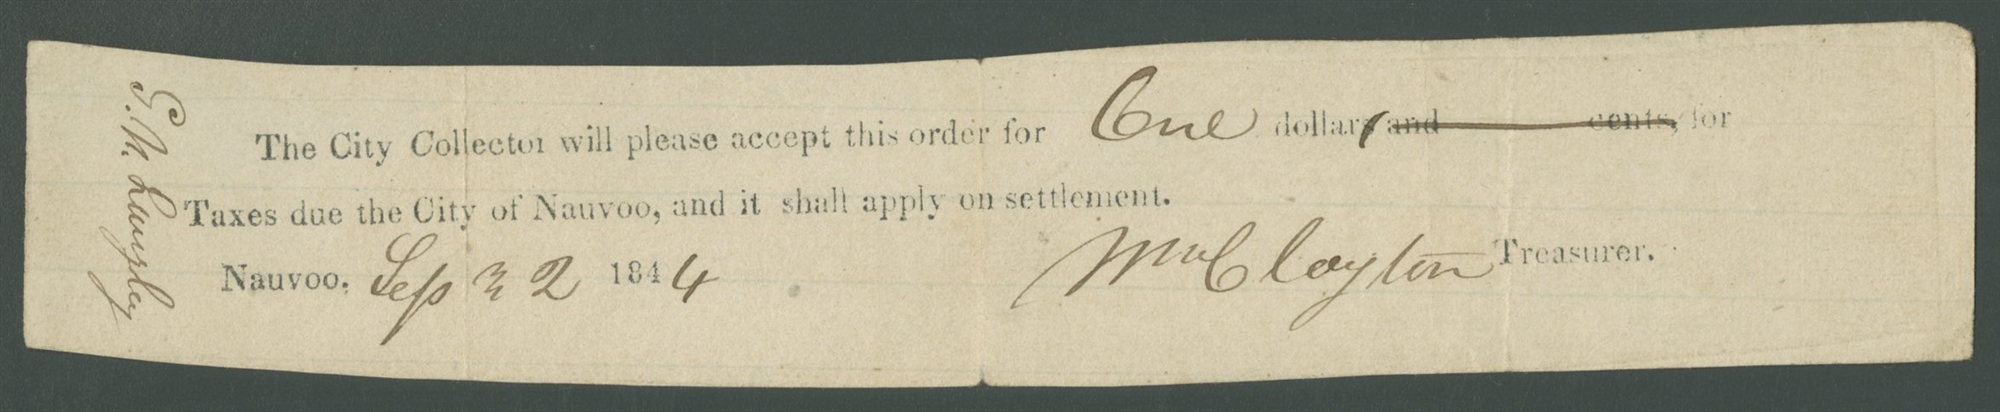 The City Collector will please accept this order for One dollars and cents, for
Taxes due the City of Nauvoo, and it shall apply on settlement.
Nauvoo, Sep 2 1844 Wm Clayton Treasurer.
S. M.